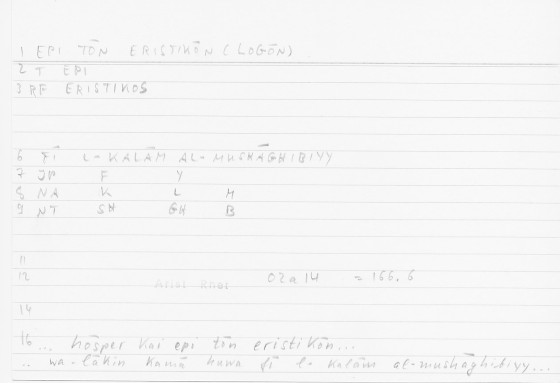 1 EPI TŌN ERISTIKŌN (LOGŌN)
2 T EPI
3 RF ERISTIKOS
6 FĪ L-KALĀM AL-MUSHĀGHIBIYY
7 JP F Y
8 NA K L M
9 NT SH GH B
11
12 02a14 = 166.6
14
16 ... hōsper kai epi tōn eristikōn...
.. wa-lākin kamā huwa fī l-kalām al-mushāghibiyy...